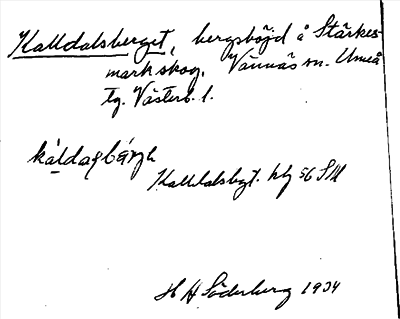 Kalldalsberget, bergshöjd å Stärkes-
mark skog, Vännäs sn. Umeå
tg. Västerb. l.
káldasbárjh
Kalldalsbgt. blz 56 SM
H H Söderberg 1934